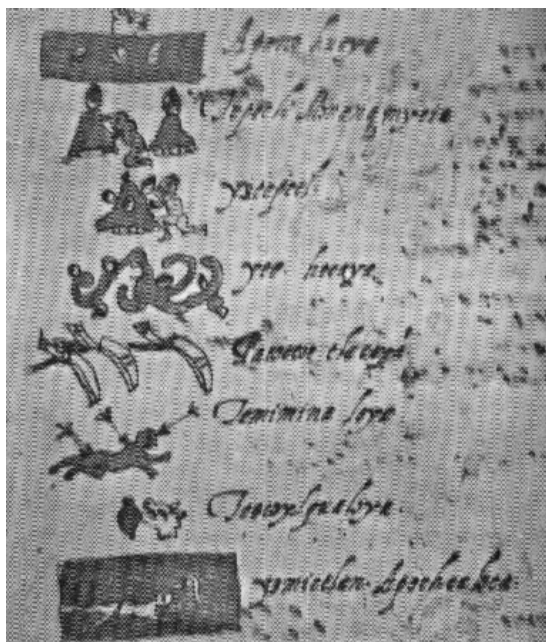 Apano huaya
Tepetl Monanamycia
yztepetl
yee hecaya
Pacuecue tlacaya
Temimina loya
Teocoylqualoya
yzmictlan Apochcaloca